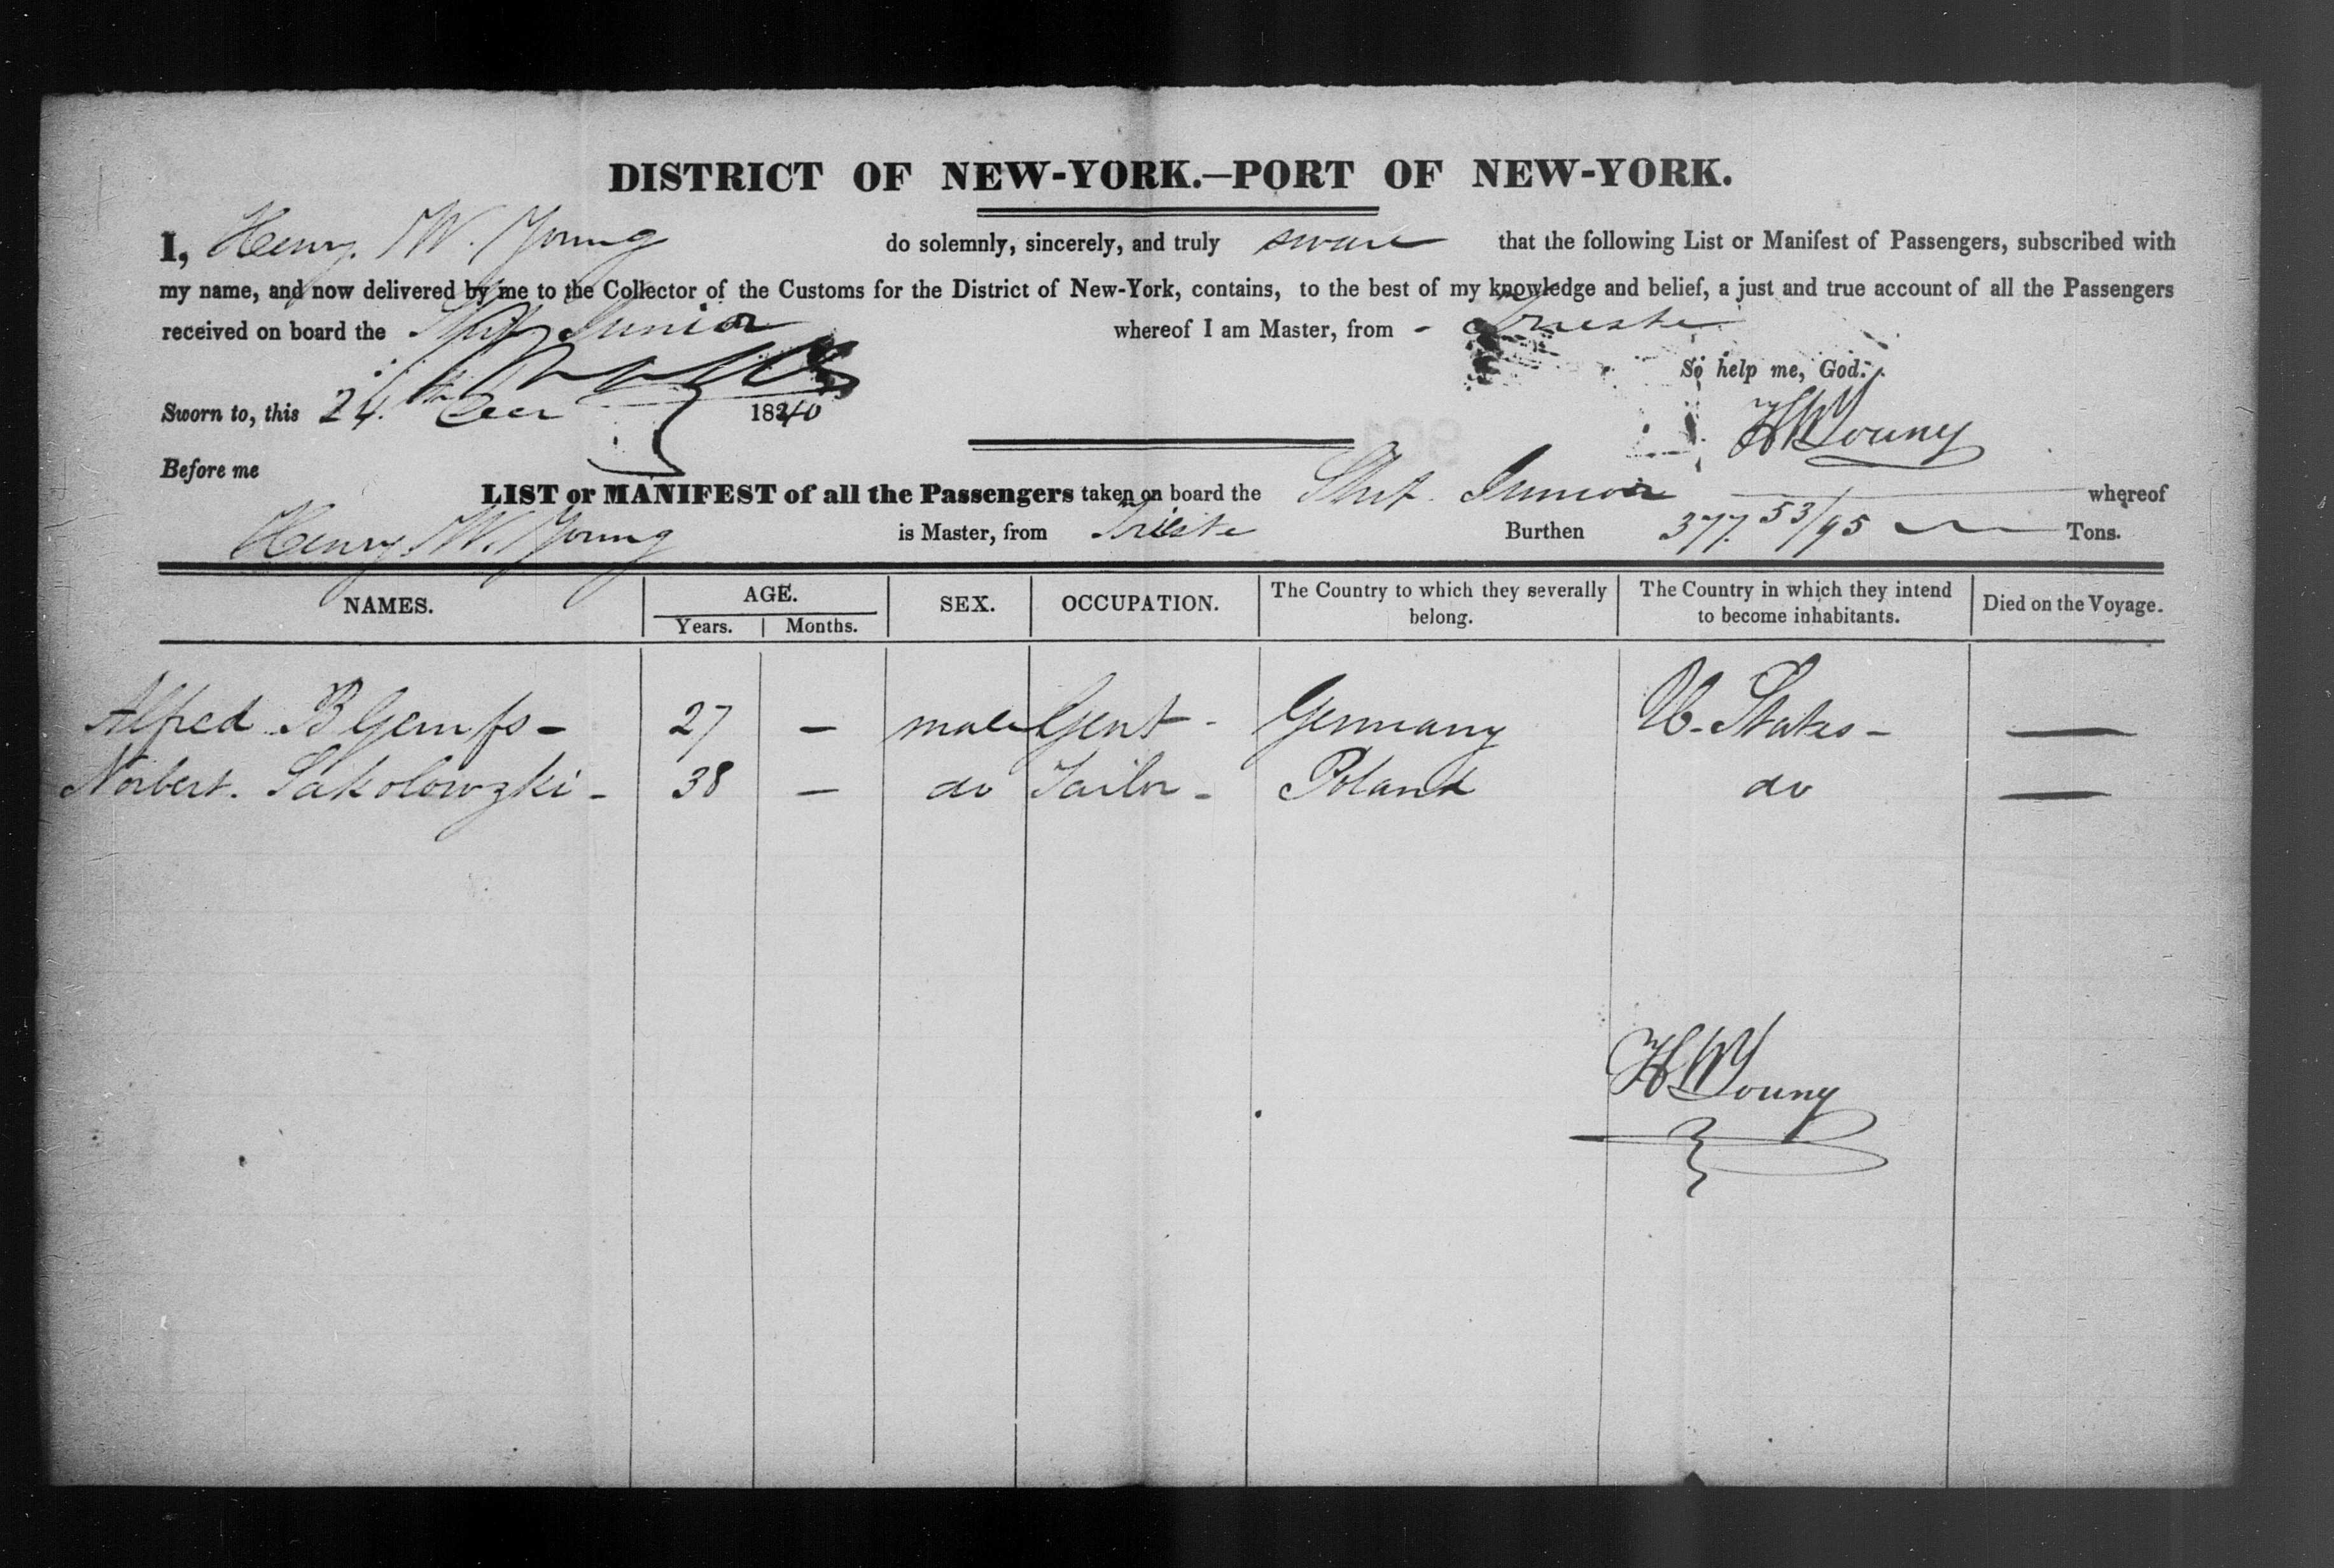 DISTRICT OF NEW-YORK.—PORT OF NEW-YORK.
I, Henry W. Young do solemnly, sincerely, and truly sware that the following List or Manifest of Passengers, subscribed with
my name, and now delivered by me to the Collector of the Customs for the District of New-York, contains, to the best of my knowledge and belief, a just and true account of all the Passengers
received on board the Ship Junior whereof I am Master, from - Trieste
So help me, God.
Sworn to, this 24th Decr 1840
HWYoung
Before me
LIST or MANIFEST of all the Passengers taken on board the Ship Junior whereof
Henry W. Young is Master, from Trieste Burthen 377. 53/95 Tons.
NAMES. AGE. Years. Months. SEX. OCCUPATION. The Country to which they severally belong. The Country in which they intend to become inhabitants. Died on the Voyage.
Alfred 27 — male Gent - Germany U. States - —
Norbert. Sakolowzki - 38 — do Tailor - Poland do —
HWYoung